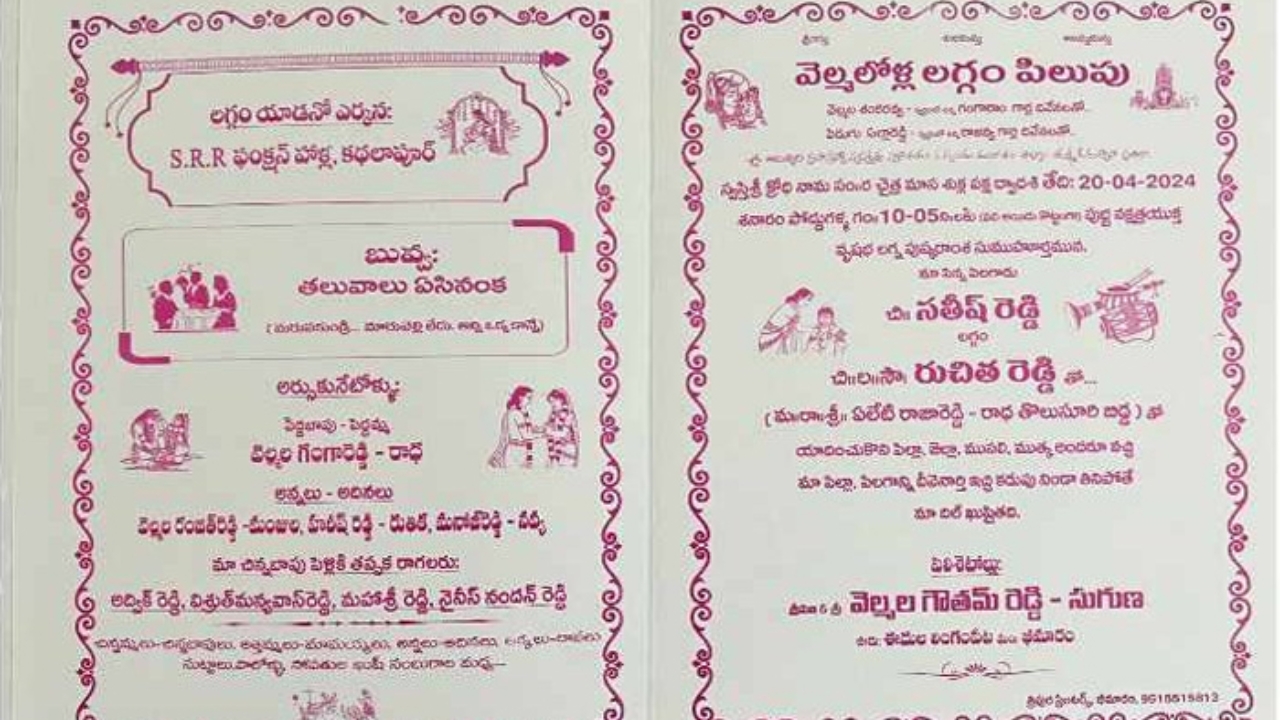 లగ్గం యాడనో ఎర్కన:
S.R.R ఫంక్షన్ హాల్ల, కథలాపూర్
బువ్వ:
తలువాలు ఏసినంక
అర్సుకునేటోళ్ళు:
పెద్దబాపు - పెద్దమ్మ
వెల్మల గంగారెడ్డి - రాధ
అన్నలు - అదినలు
వెల్మల రంజిత్‌రెడ్డి -మంజుల, హరీష్ రెడ్డి - రుతిక, మనోజ్‌రెడ్డి - నవ్య
మా చిన్నబాపు పెళ్లికి తప్పక రాగలరు:
అద్విక్ రెడ్డి, విశ్రుత్‌మన్యవాస్‌రెడ్డి, మహాశ్రీ రెడ్డి, నైనీస్ నందన్ రెడ్డి
చిన్నమ్మలు-చిన్నబాపులు, అత్తమ్మలు-మామయ్యలు, అన్నలు-అదినలు, అక్కలు-బావలు
సుట్టాలు,పాలోళ్ళు, సోపతుల ఖుషీ సంబురాల మధ్య...
వెల్మలోళ్ల లగ్గం పిలుపు
స్వస్తిశ్రీ క్రోధి నామ సం॥ర చైత్ర మాస శుక్ల పక్ష ద్వాదశి తేది: 20-04-2024
శనారం పోద్దుగళ్ళ గం॥ 10-05ని॥లకు పుబ్బ నక్షత్రయుక్త
వృషభ లగ్న పుష్కరాంశ సుముహూర్తమున.
మా సిన్న పిలగాడు
చి॥ సతీష్ రెడ్డి
లగ్గం
చి॥ల॥సౌ॥ రుచిత రెడ్డి తో...
( మ॥రా॥శ్రీ॥ ఏలేటి రాజారెడ్డి - రాధ తొలుసూరి బిడ్డ ) తో
యాదించుకొని పిల్లా, జెల్లా, ముసలి, ముత్క అందరూ వచ్చి
మా పిల్లా, పిలగాన్ని దీవెనార్తి ఇచ్చి కడుపు నిండా తినిపోతే
మా దిల్ ఖుషైతది.
పిలిశెటోల్లు:
శ్రీమతి & శ్రీ వెల్మల గౌతమ్ రెడ్డి - సుగుణ
ఊరు: ఈదుల లింగంపేట మం: భీమారం